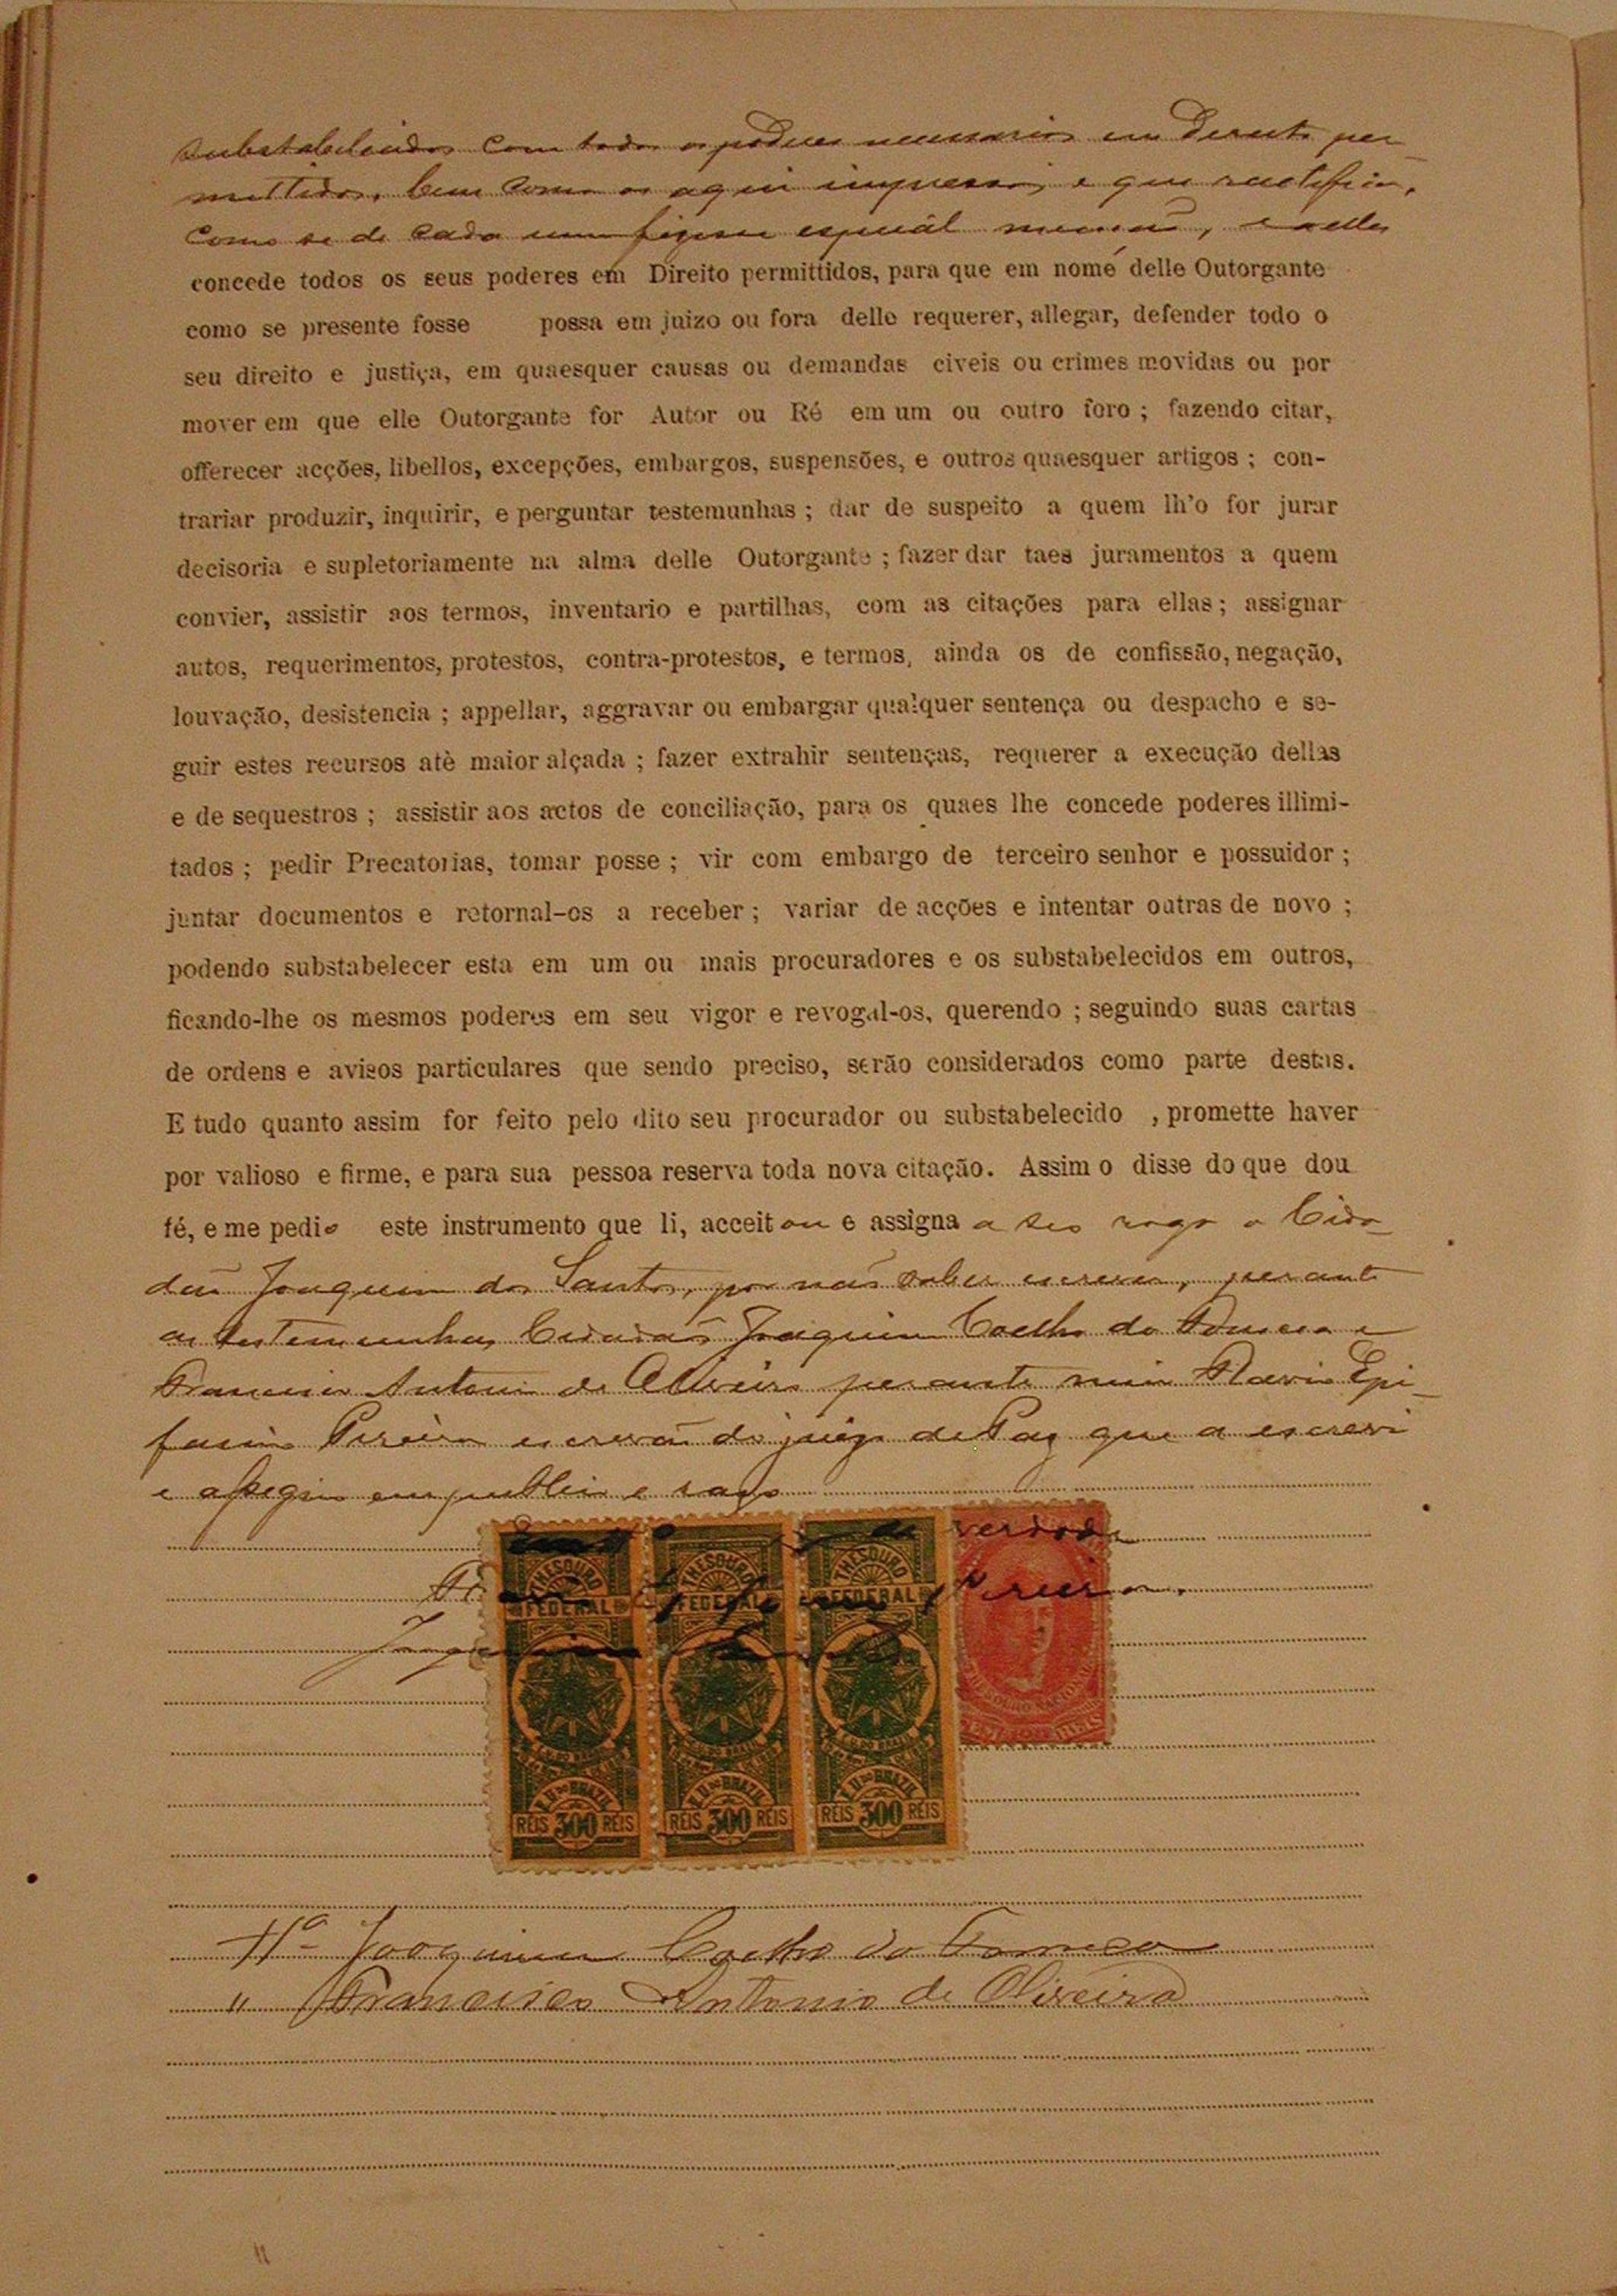 substabelecidos com todos os poderes necessarios em Direito per
mittidos, bem como os aqui impressos, e que ractifica,
como se de cada um fizesse espicial menção, e a elles
concede todos os seus poderes em Direito permittidos, para que em nome delle Outorgante
como se presente fosse possa em juizo ou fora delle requerer, allegar, defender todo o
seu direito e justiça, em quaesquer causas ou demandas civeis ou crimes movidas ou por
mover em que elle Outorgante for Autor ou Ré em um ou outro foro ; fazendo citar,
offerecer acções, libellos, excepções, embargos, suspensões, e outros quaesquer artigos ; con-
trariar produzir, inquirir, e perguntar testemunhas ; dar de suspeito a quem lh'o for jurar
decisoria e supletoriamente na alma delle Outorgante ; fazer dar taes juramentos a quem
convier, assistir aos termos, inventario e partilhas, com as citações para ellas ; assignar
autos, requerimentos, protestos, contra-protestos, e termos, ainda os de confissão, negação,
louvação, desistencia ; appellar, aggravar ou embargar qualquer sentença ou despacho e se-
guir estes recursos atè maior alçada ; fazer extrahir sentenças, requerer a execução dellas
e de sequestros ; assistir aos actos de conciliação, para os quaes lhe concede poderes illimi-
tados ; pedir Precatorias, tomar posse ; vir com embargo de terceiro senhor e possuidor ;
juntar documentos e retornal-os a receber ; variar de acções e intentar outras de novo ;
podendo substabelecer esta em um ou mais procuradores e os substabelecidos em outros,
ficando-lhe os mesmos poderes em seu vigor e revogal-os, querendo ; seguindo suas cartas
de ordens e avisos particulares que sendo preciso, serão considerados como parte destas.
E tudo quanto assim for feito pelo dito seu procurador ou substabelecido , promette haver
por valioso e firme, e para sua pessoa reserva toda nova citação. Assim o disse do que dou
fé, e me pedio este instrumento que li, acceitou e assigna a seu rogo o Cida
dão Joaquim dos Santos, por não saber escrever, perante
as testemunhas Cidadãos Joaquim Coelho da Fonseca e
Francisco Antonio de Oliveira perante mim Flavio Epi
fanio Pereira escrivão do juizo de Paz que a escrevi
e assigno em publico e raso
verdade
Pereira
THESOURO THESOURO THESOURO
FEDERAL FEDERAL FEDERAL
REIS 300 REIS REIS 300 REIS REIS 300 REIS
Tª Joaquim Coelho da Fonseca
" Francisco Antonio de Oliveira